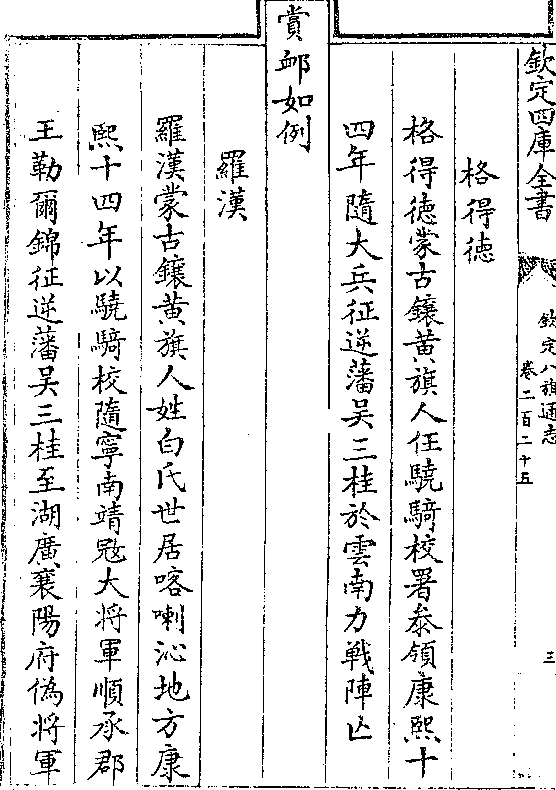 欽定四庫全書
欽定八旗通志
卷二百二十五
三
格得徳
格得徳蒙古鑲黄旗人任驍騎校署叅領康熙十
四年隨大兵征逆藩吴三桂於雲南力戰陣亡
賞卹如例
羅漢
羅漢蒙古鑲黄旗人姓白氏世居喀喇沁地方康
熙十四年以驍騎校隨寧南靖寇大將軍順承郡
王勒爾錦征逆藩吴三桂至湖廣襄陽府偽將軍